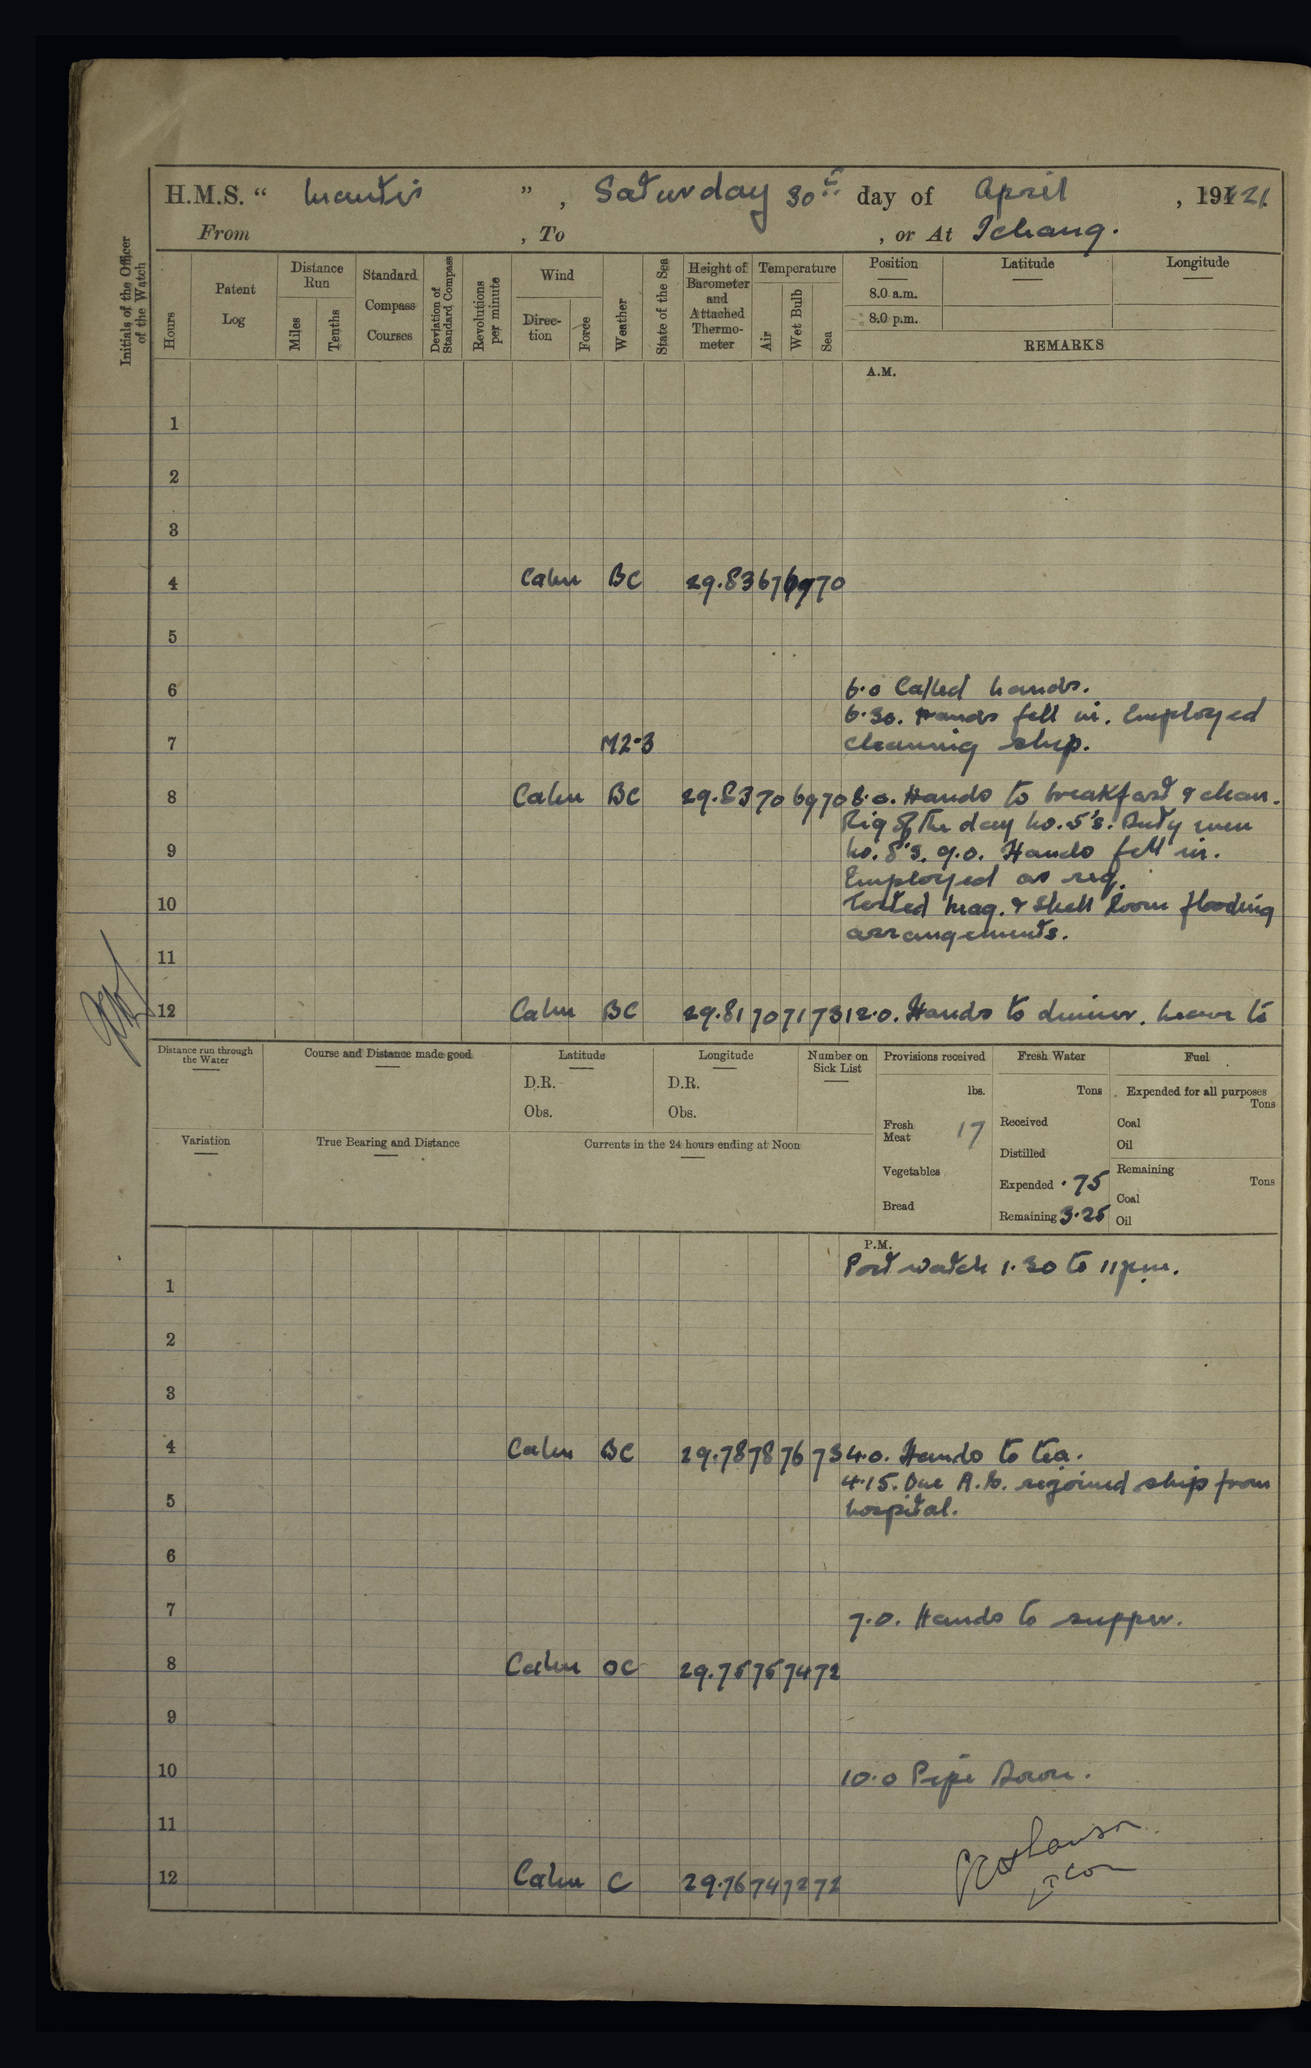 H.M.S. “ Mantis ”, Saturday 30th day of April, 1921.
From , To , or At Ichang.
Initials of the Officer of the Watch
Hours
Patent Log
Distance Run
Miles
Tenths
Standard Compass Courses
Deviation of Standard Compass
Revolutions per minute
Wind
Direction
Force
Weather
State of the Sea
Height of Barometer and Attached Thermometer
Temperature
Air
Wet Bulb
Sea
Position
Latitude
Longitude
8.0 a.m.
8.0 p.m.
REMARKS
A.M.
1
2
3
4 Calm BC 29.83 67 69 70
5
6 6.0 Called hands.
6.30. Hands fell in. Employed
7 M2-3 cleaning ship.
8 Calm BC 29.83 70 69 70 8.0. Hands to breakfast & clean.
Rig of the day No. 5's. Duty men
9 No. 8's. 9.0. Hands fell in.
Employed as req.
10 Tested Mag. & Shell Room flooding
arrangements.
11
12 Calm BC 29.81 70 71 73 12.0. Hands to dinner. Leave to
Distance run through the Water
Course and Distance made good
Latitude
D.R.
Obs.
Longitude
D.R.
Obs.
Number on Sick List
Provisions received
lbs.
Fresh Meat 17
Vegetables
Bread
Fresh Water
Tons
Received
Distilled
Expended .75
Remaining 3.25
Fuel
Expended for all purposes
Tons
Coal
Oil
Remaining
Tons
Coal
Oil
Variation
True Bearing and Distance
Currents in the 24 hours ending at Noon
P.M.
Port watch 1.30 to 11 p.m.
1
2
3
4 Calm BC 29.78 78 76 73 4.0. Hands to tea.
4.15. One A.B. rejoined ship from
5 hospital.
6
7 7.0. Hands to supper.
8 Calm OC 29.75 75 74 72
9
10 10.0 Pipe Down.
11
12 Calm C 29.76 74 72 72
Lt Com